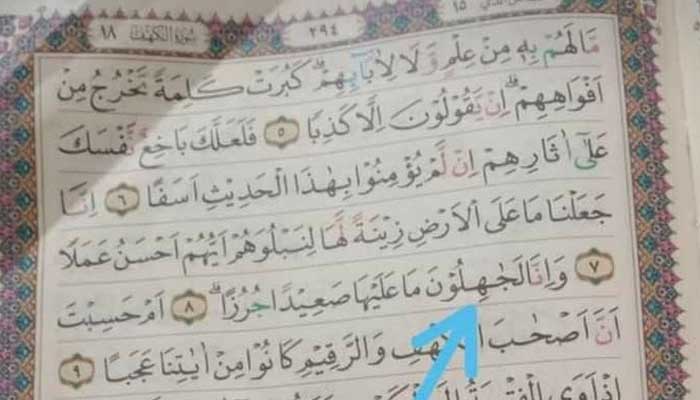 ١٥
٢٩٤
سُوْرَةُ الْكَهْفِ ١٨
مَا لَهُمْ بِهٖ مِنْ عِلْمٍ وَّلَا لِاٰبَاۤىِٕهِمْۗ كَبُرَتْ كَلِمَةً تَخْرُجُ مِنْ
اَفْوَاهِهِمْۗ اِنْ يَّقُوْلُوْنَ اِلَّا كَذِبًا ٥ فَلَعَلَّكَ بَاخِعٌ نَّفْسَكَ
عَلٰٓى اٰثَارِهِمْ اِنْ لَّمْ يُؤْمِنُوْا بِهٰذَا الْحَدِيْثِ اَسَفًا ٦ اِنَّا
جَعَلْنَا مَا عَلَى الْاَرْضِ زِيْنَةً لَّهَا لِنَبْلُوَهُمْ اَيُّهُمْ اَحْسَنُ عَمَلًا
٧ وَاِنَّا لَجٰهِلُوْنَ مَا عَلَيْهَا صَعِيْدًا جُرُزًاۗ ٨ اَمْ حَسِبْتَ
اَنَّ اَصْحٰبَ الْكَهْفِ وَالرَّقِيْمِ كَانُوْا مِنْ اٰيٰتِنَا عَجَبًا ٩
اِذْ اَوَى الْفِتْيَةُ